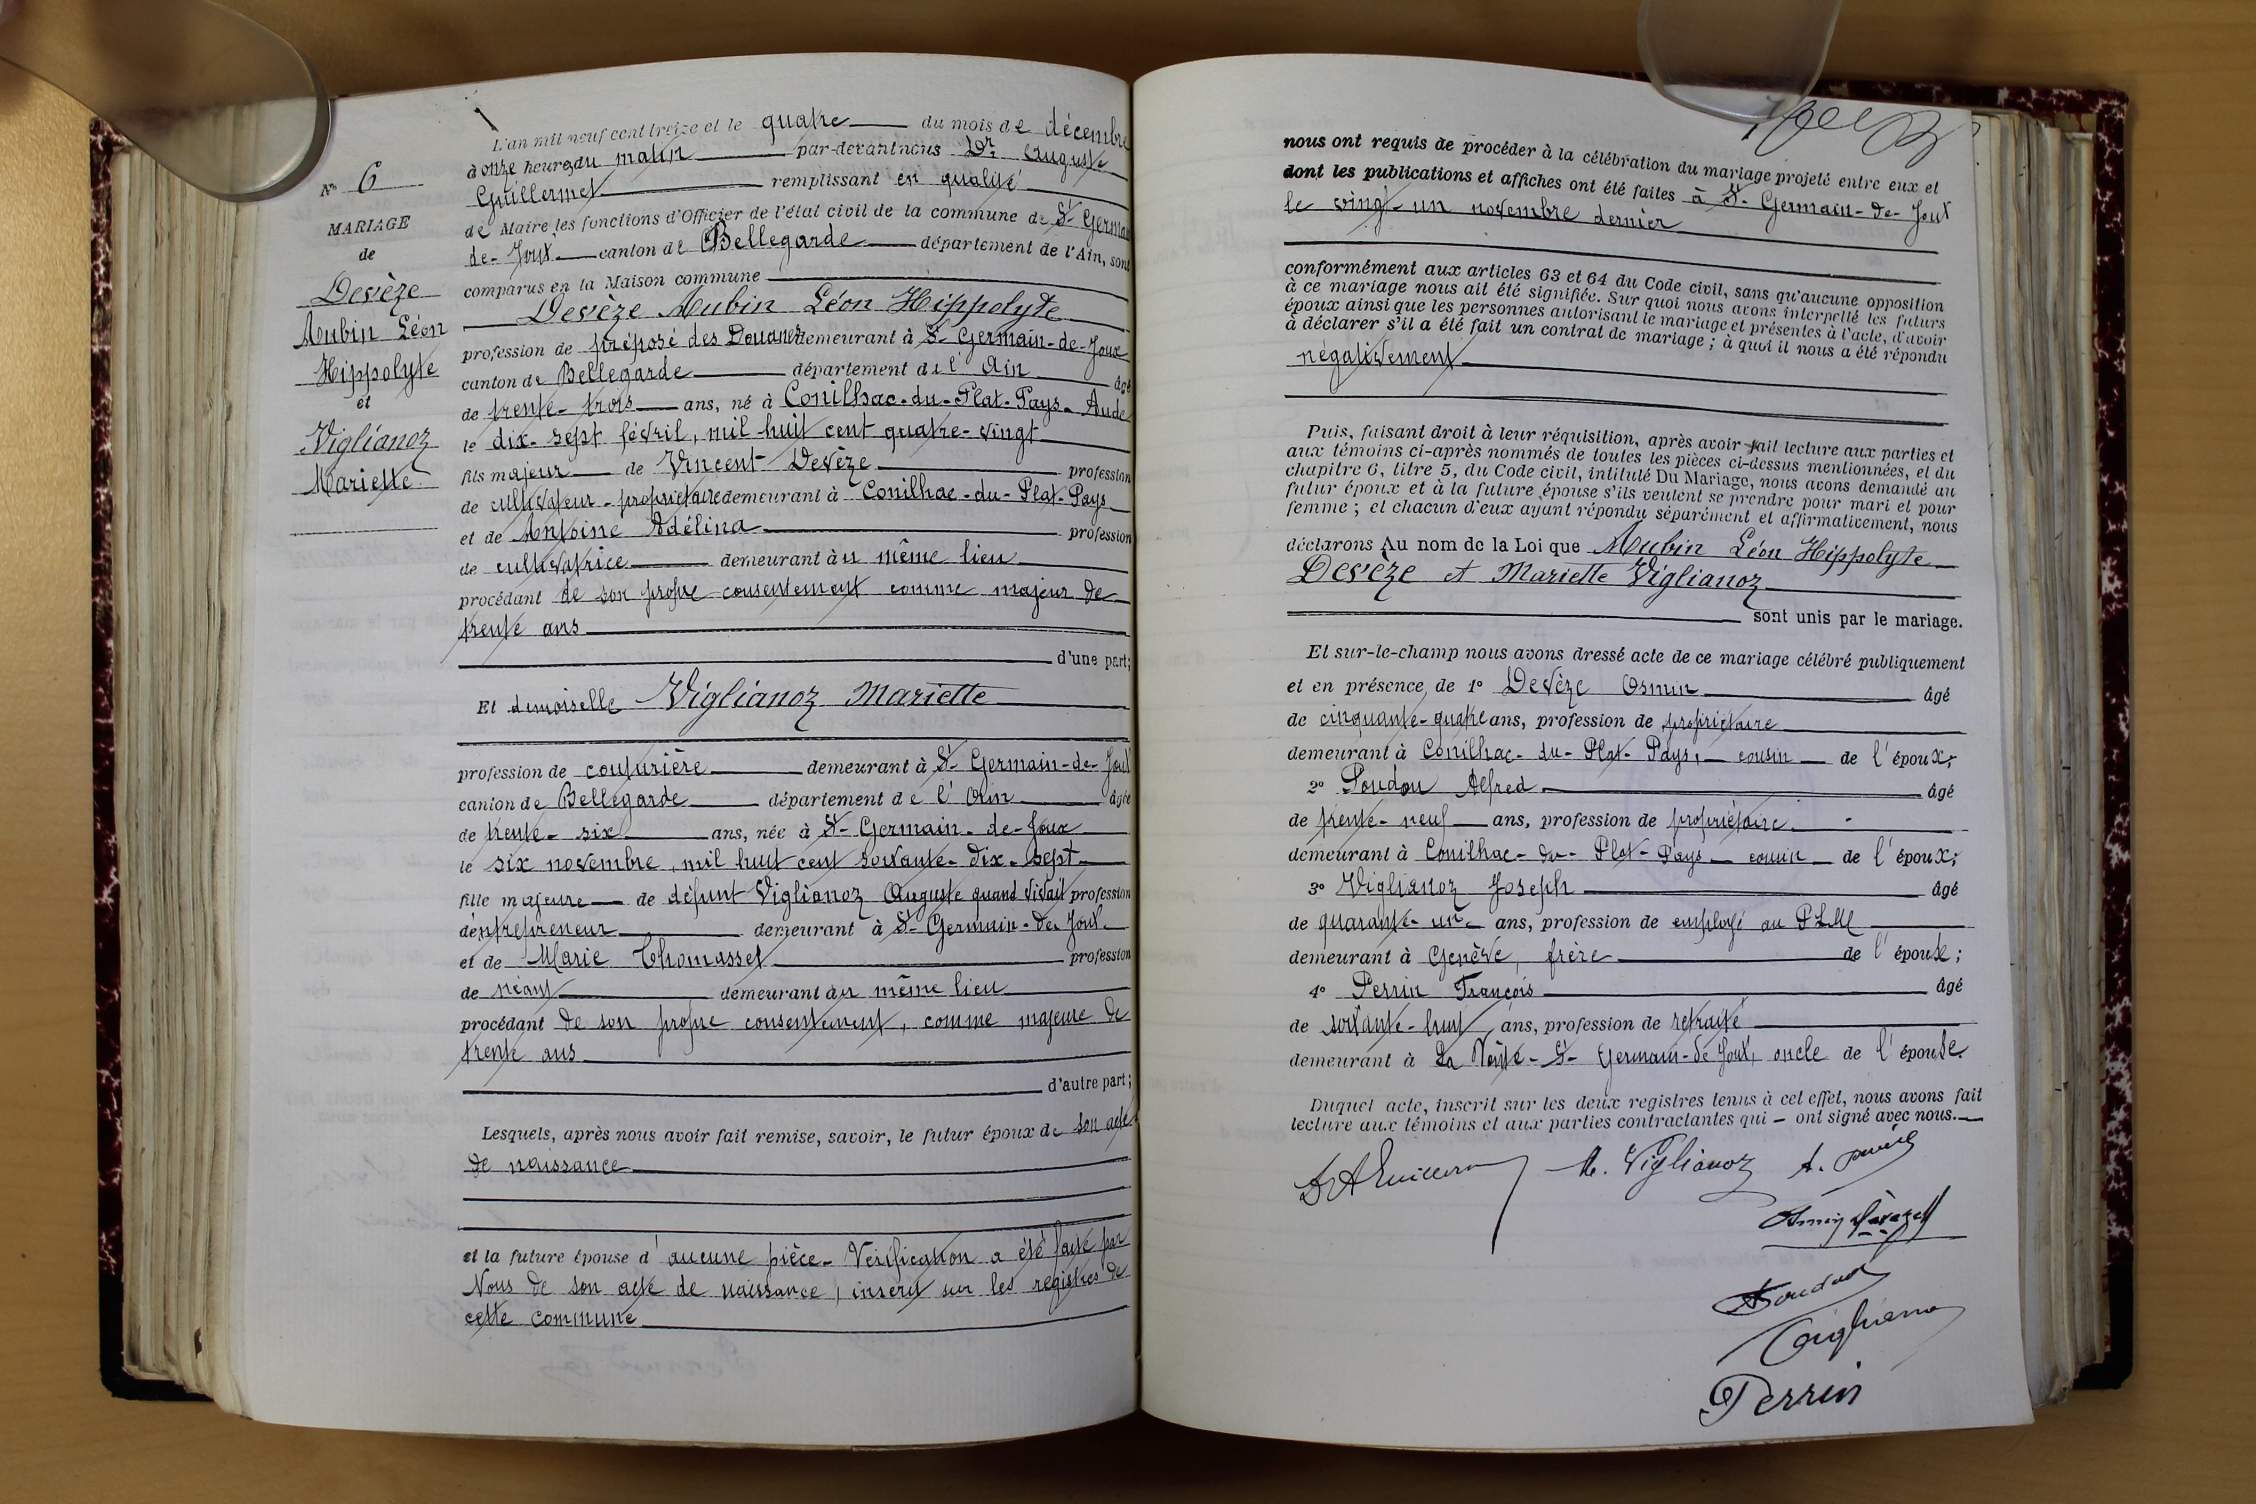 N° 6
MARIAGE
de
Devèze
Aubin Léon
Hippolyte
et
Viglianoz
Mariette
L'an mil neuf cent treize et le quatre du mois de décembre
à onze heures du matin par-devant nous Dr. Auguste
Guillermet remplissant en qualité
de Maire les fonctions d'Officier de l'état civil de la commune de St Germain
de-Joux canton de Bellegarde département de l'Ain, sont
comparus en la Maison commune
Devèze Aubin Léon Hippolyte
profession de préposé des Douanes demeurant à St Germain-de-Joux
canton de Bellegarde département de l'Ain âgé
de trente-trois ans, né à Conilhac-du-Plat-Pays-Aude
le dix-sept février, mil huit cent quatre-vingt
fils majeur de Vincent Devèze profession
de cultivateur-propriétaire demeurant à Conilhac-du-Plat-Pays
et de Antoine Adélina profession
de cultivatrice demeurant au même lieu
procédant de son propre consentement comme majeur de
trente ans
d'une part;
Et demoiselle Viglianoz Mariette
profession de couturière demeurant à St Germain-de-Joux
canton de Bellegarde département de l'Ain âgée
de trente-six ans, née à St-Germain-de-Joux
le six novembre, mil huit cent soixante-dix-sept
fille majeure de défunt Viglianoz Auguste quand vivait profession
d'entrepreneur demeurant à St-Germain-de-Joux
et de Marie Thomasset profession
de néant demeurant au même lieu
procédant de son propre consentement, comme majeure de
trente ans
d'autre part;
Lesquels, après nous avoir fait remise, savoir, le futur époux de son acte
de naissance
et la future épouse d'aucune pièce-Vérification a été faite par
Nous de son acte de naissance, inscrit sur les registres de
cette commune
nous ont requis de procéder à la célébration du mariage projeté entre eux et
dont les publications et affiches ont été faites à St-Germain-de-Joux
le vingt-un novembre dernier
conformément aux articles 63 et 64 du Code civil, sans qu'aucune opposition
à ce mariage nous ait été signifiée. Sur quoi nous avons interpellé les futurs
époux ainsi que les personnes autorisant le mariage et présentes à l'acte, d'avoir
à déclarer s'il a été fait un contrat de mariage; à quoi il nous a été répondu
négativement
Puis, faisant droit à leur réquisition, après avoir fait lecture aux parties et
aux témoins ci-après nommés de toutes les pièces ci-dessus mentionnées, et du
chapitre 6, titre 5, du Code civil, intitulé Du Mariage, nous avons demandé au
futur époux et à la future épouse s'ils veulent se prendre pour mari et pour
femme; et chacun d'eux ayant répondu séparément et affirmativement, nous
déclarons Au nom de la Loi que Aubin Léon Hippolyte
Devèze et Mariette Viglianoz
sont unis par le mariage.
Et sur-le-champ nous avons dressé acte de ce mariage célébré publiquement
et en présence de 1° Devèze Osmin âgé
de cinquante-quatre ans, profession de propriétaire
demeurant à Conilhac-du-Plat-Pays, cousin de l'époux;
2° Poudou Alfred âgé
de trente-neuf ans, profession de propriétaire
demeurant à Conilhac-du-Plat-Pays cousin de l'époux;
3° Viglianoz Joseph âgé
de quarante-un ans, profession de employé au PLM
demeurant à Genève, frère de l'épouse;
4° Perrin François âgé
de soixante-huit ans, profession de retraité
demeurant à La Voûte-St-Germain-de-Joux, oncle de l'épouse.
Duquel acte, inscrit sur les deux registres tenus à cet effet, nous avons fait
lecture aux témoins et aux parties contractantes qui - ont signé avec nous.
Dr A Guillermet M. Viglianoz A. Devèze
Osmin Devèze
Poudou
Viglianoz
Perrin